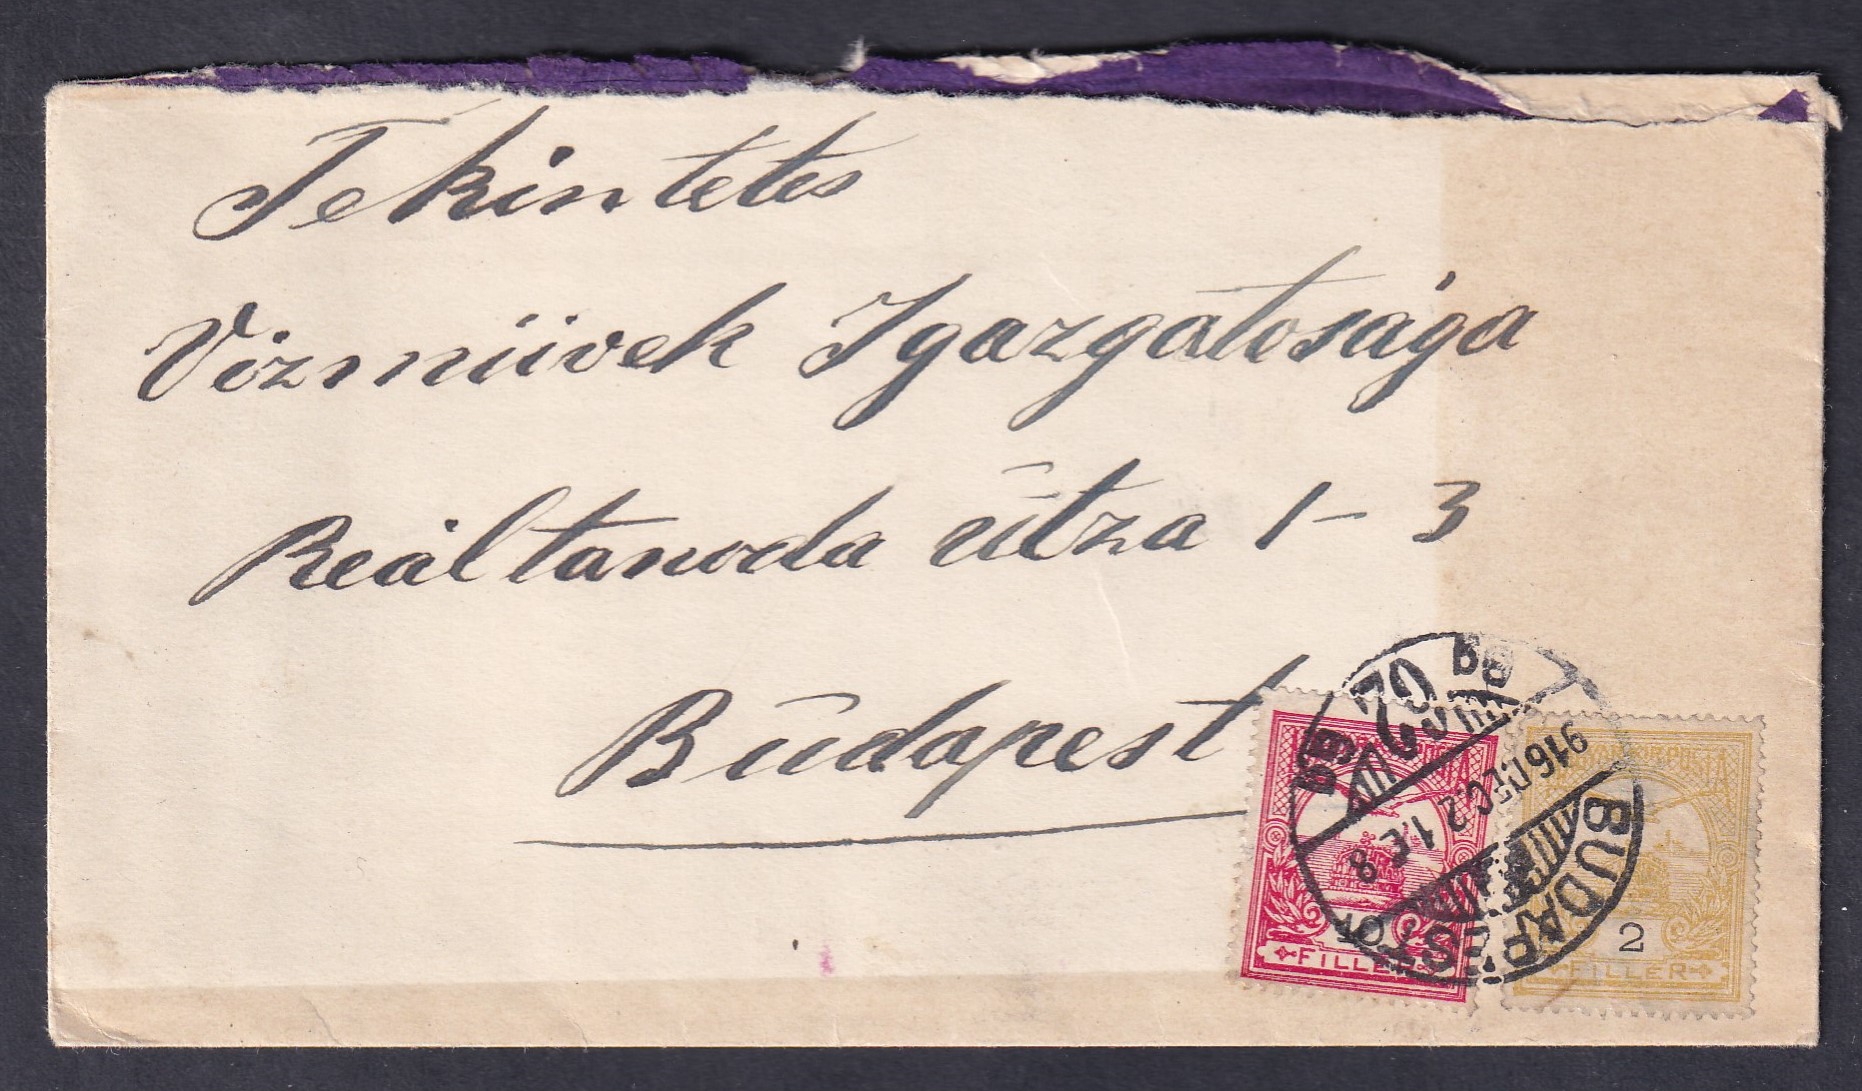 Tekintetes
Vizmüvek Igazgatosága
Reáltanoda útza 1-3
Búdapest
MAGYAR KIR. POSTA
FILLER
2
FILLER
BUDAPEST
916 DEC. 2